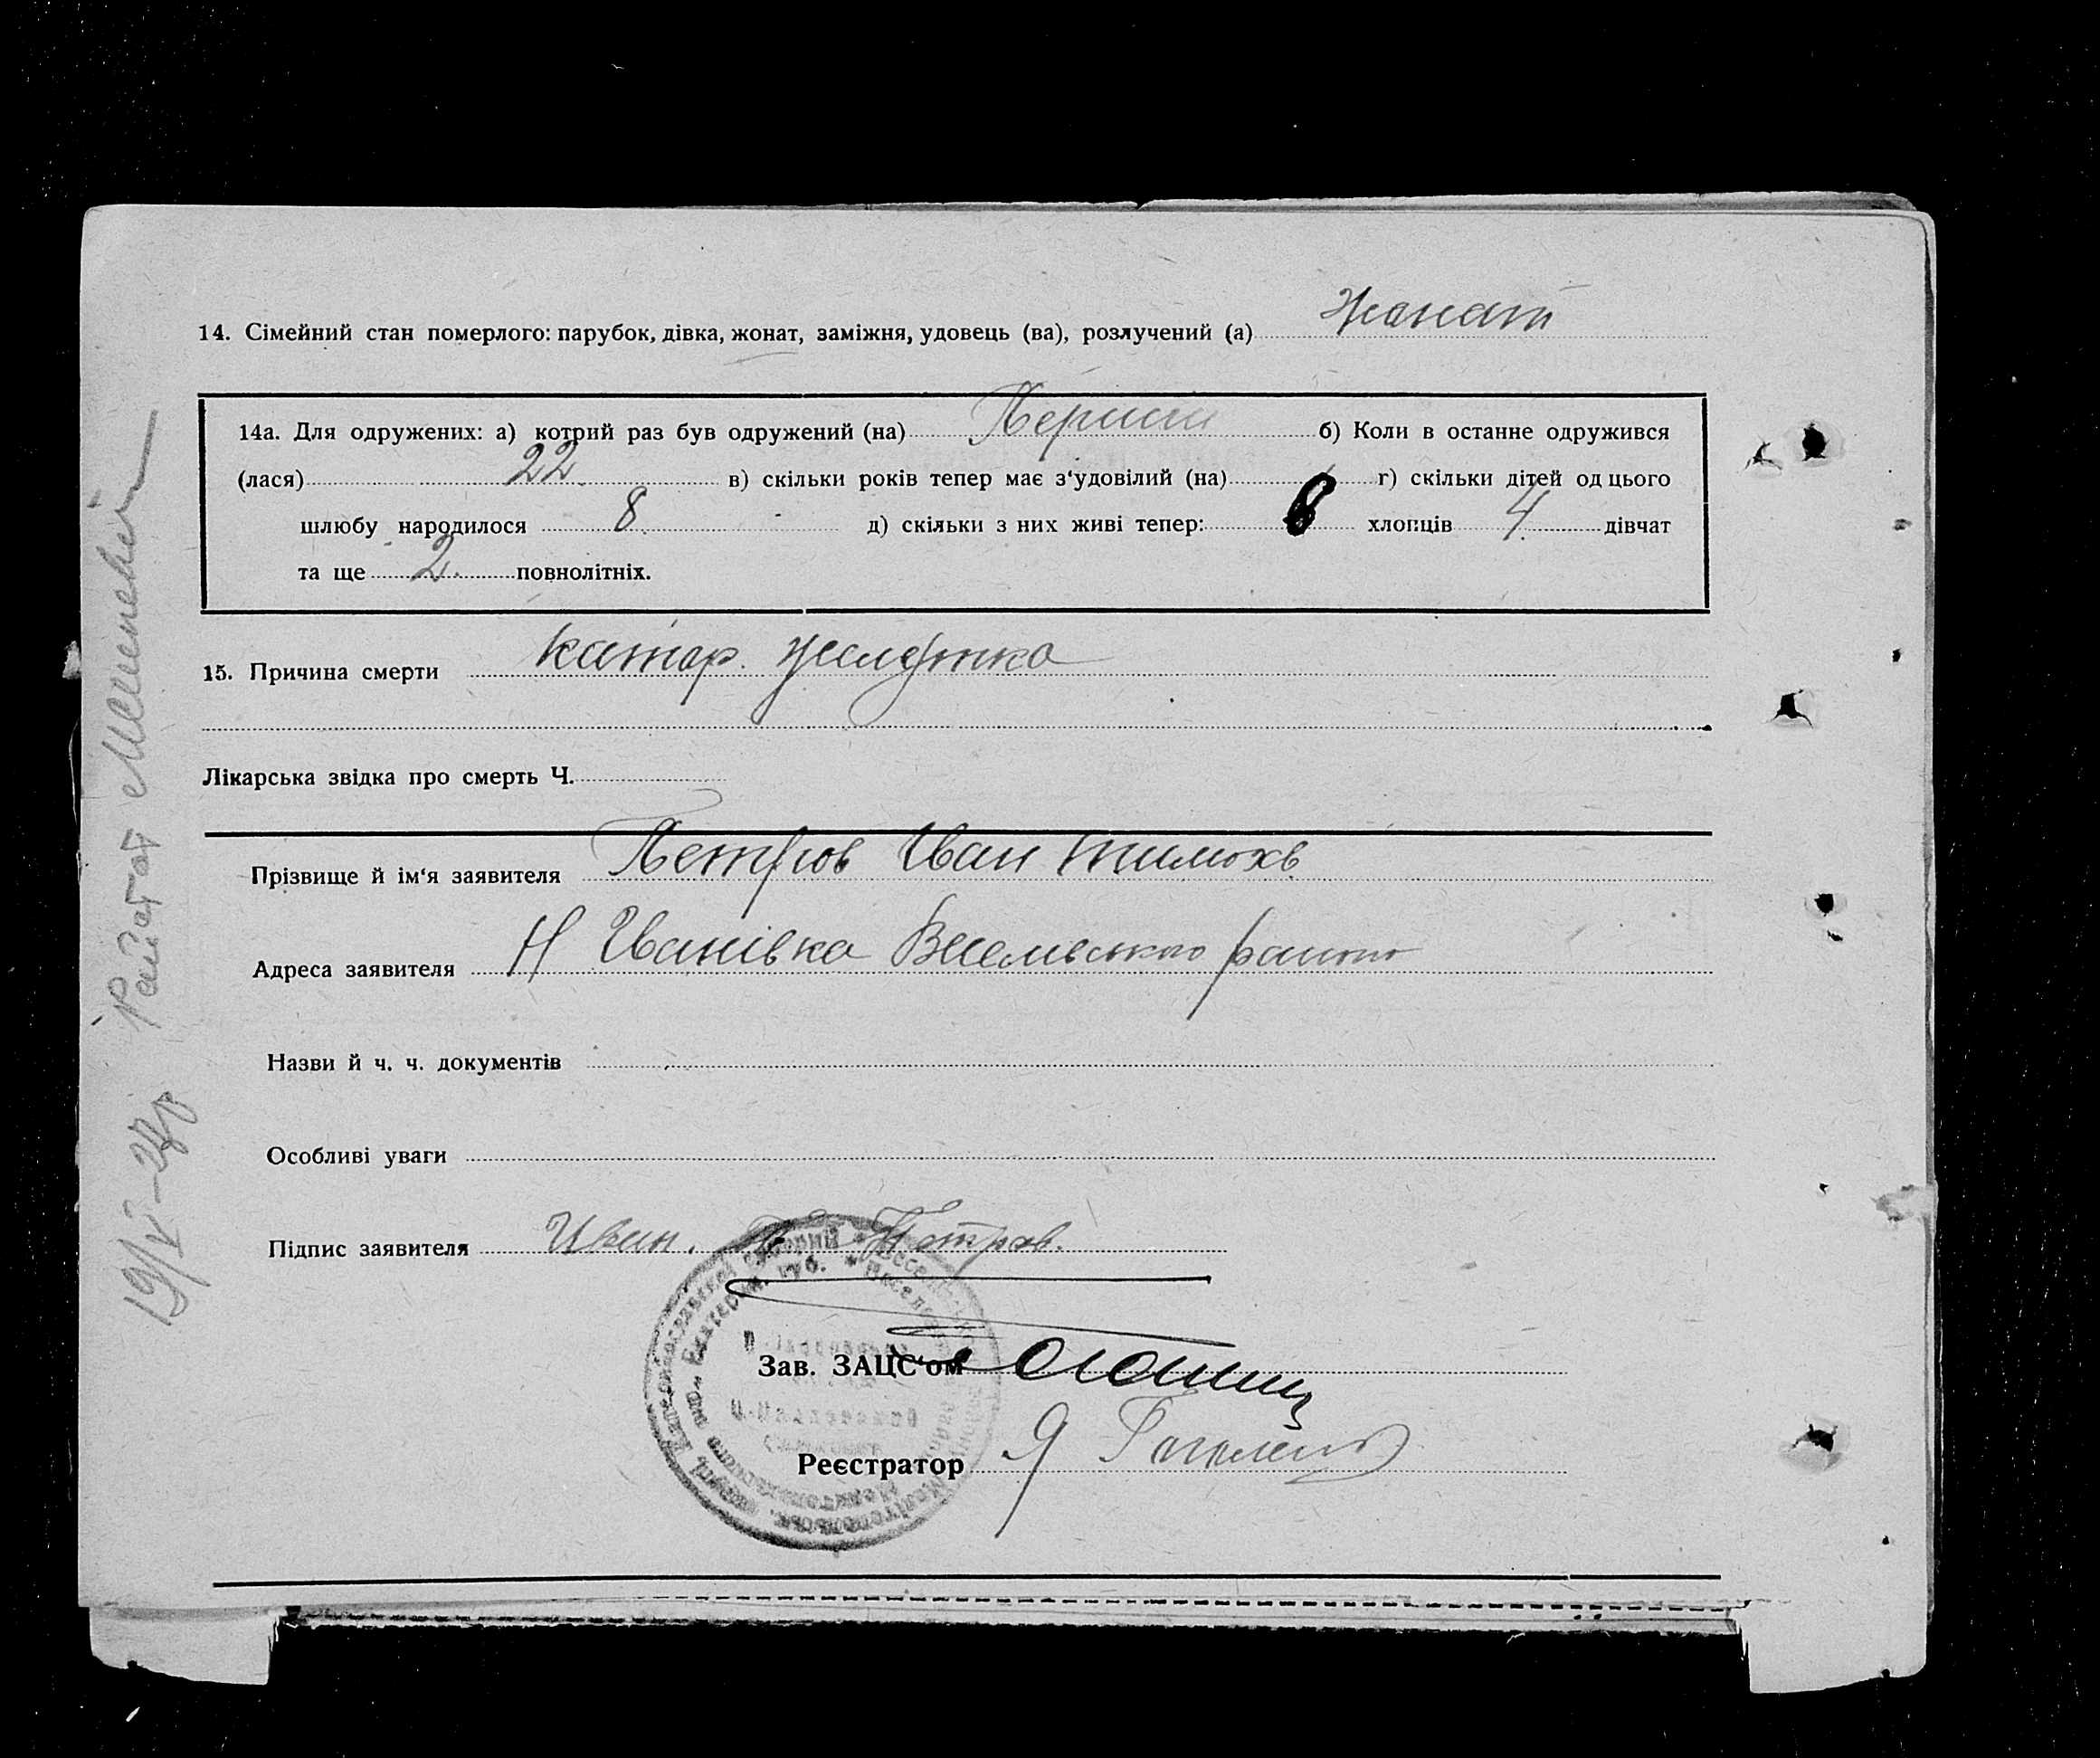 14. Сімейний стан померлого: парубок, дівка, жонат, заміжня, удовець (ва), розлучений (а) Жонат
14а. Для одружених: а) котрий раз був одружений (на) Перший б) Коли в останне одружився
(лася) 22 в) скільки років тепер має з'удовілий (на) г) скільки дітей од цього
шлюбу народилося 8 д) скільки з них живі тепер: 6 хлопців 4 дівчат
та ще 2 повнолітніх.
15. Причина смерти катар. желудка
Лікарська звідка про смерть Ч.
Прізвище й ім'я заявителя Петров Іван Тимохв
Адреса заявителя Н Іванівка Веселівського району
Назви й ч. ч. документів
Особливі уваги
Підпис заявителя Иван. Петров.
Зав. ЗАЦС'ом
Реєстратор Я
19/V-27р Райстат